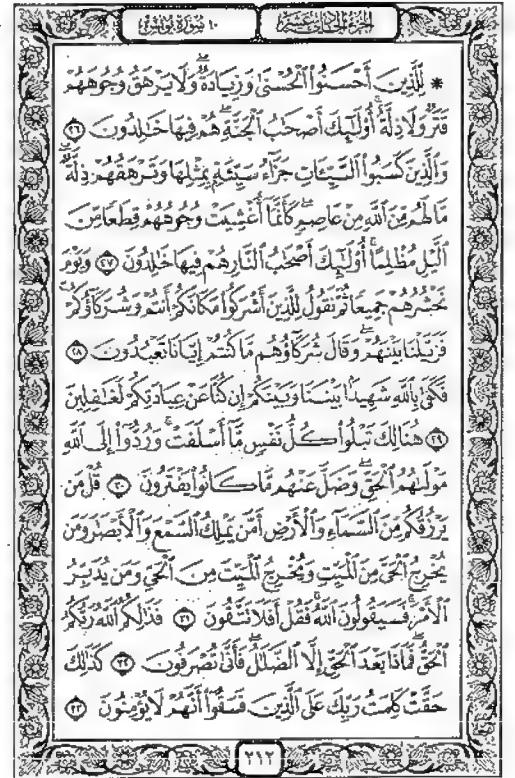 ١٠ سورة يونس
الجزء الحادي عشر
* لِّلَّذِينَ أَحْسَنُوا۟ ٱلْحُسْنَىٰ وَزِيَادَةٌ ۖ وَلَا يَرْهَقُ وُجُوهَهُمْ
قَتَرٌ وَلَا ذِلَّةٌ ۚ أُو۟لَـٰٓئِكَ أَصْحَـٰبُ ٱلْجَنَّةِ ۖ هُمْ فِيهَا خَـٰلِدُونَ ٢٦
وَٱلَّذِينَ كَسَبُوا۟ ٱلسَّيِّـَٔاتِ جَزَآءُ سَيِّئَةٍۭ بِمِثْلِهَا وَتَرْهَقُهُمْ ذِلَّةٌ ۖ
مَّا لَهُم مِّنَ ٱللَّهِ مِنْ عَاصِمٍ ۖ كَأَنَّمَآ أُغْشِيَتْ وُجُوهُهُمْ قِطَعًا مِّنَ
ٱلَّيْلِ مُظْلِمًا ۚ أُو۟لَـٰٓئِكَ أَصْحَـٰبُ ٱلنَّارِ ۖ هُمْ فِيهَا خَـٰلِدُونَ ٢٧ وَيَوْمَ
نَحْشُرُهُمْ جَمِيعًا ثُمَّ نَقُولُ لِلَّذِينَ أَشْرَكُوا۟ مَكَانَكُمْ أَنتُمْ وَشُرَكَآؤُكُمْ ۚ
فَزَيَّلْنَا بَيْنَهُمْ ۖ وَقَالَ شُرَكَآؤُهُم مَّا كُنتُمْ إِيَّانَا تَعْبُدُونَ ٢٨
فَكَفَىٰ بِٱللَّهِ شَهِيدًۢا بَيْنَنَا وَبَيْنَكُمْ إِن كُنَّا عَنْ عِبَادَتِكُمْ لَغَـٰفِلِينَ
٢٩ هُنَالِكَ تَبْلُوا۟ كُلُّ نَفْسٍ مَّآ أَسْلَفَتْ ۚ وَرُدُّوٓا۟ إِلَى ٱللَّهِ
مَوْلَىٰهُمُ ٱلْحَقِّ ۖ وَضَلَّ عَنْهُم مَّا كَانُوا۟ يَفْتَرُونَ ٣٠ قُلْ مَن
يَرْزُقُكُم مِّنَ ٱلسَّمَآءِ وَٱلْأَرْضِ أَمَّن يَمْلِكُ ٱلسَّمْعَ وَٱلْأَبْصَـٰرَ وَمَن
يُخْرِجُ ٱلْحَىَّ مِنَ ٱلْمَيِّتِ وَيُخْرِجُ ٱلْمَيِّتَ مِنَ ٱلْحَىِّ وَمَن يُدَبِّرُ
ٱلْأَمْرَ ۚ فَسَيَقُولُونَ ٱللَّهُ ۚ فَقُلْ أَفَلَا تَتَّقُونَ ٣١ فَذَٰلِكُمُ ٱللَّهُ رَبُّكُمُ
ٱلْحَقُّ ۖ فَمَاذَا بَعْدَ ٱلْحَقِّ إِلَّا ٱلضَّلَـٰلُ ۖ فَأَنَّىٰ تُصْرَفُونَ ٣٢ كَذَٰلِكَ
حَقَّتْ كَلِمَتُ رَبِّكَ عَلَى ٱلَّذِينَ فَسَقُوٓا۟ أَنَّهُمْ لَا يُؤْمِنُونَ ٣٣
٢١٢